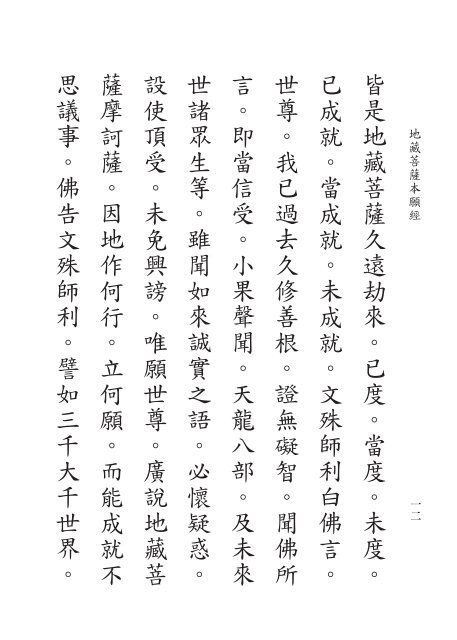 地藏菩薩本願經
一二
皆是地藏菩薩久遠劫來。已度。當度。未度。
已成就。當成就。未成就。文殊師利白佛言。
世尊。我已過去久修善根。證無礙智。聞佛所
言。即當信受。小果聲聞。天龍八部。及未來
世諸眾生等。雖聞如來誠實之語。必懷疑惑。
設使頂受。未免興謗。唯願世尊。廣說地藏菩
薩摩訶薩。因地作何行。立何願。而能成就不
思議事。佛告文殊師利。譬如三千大千世界。